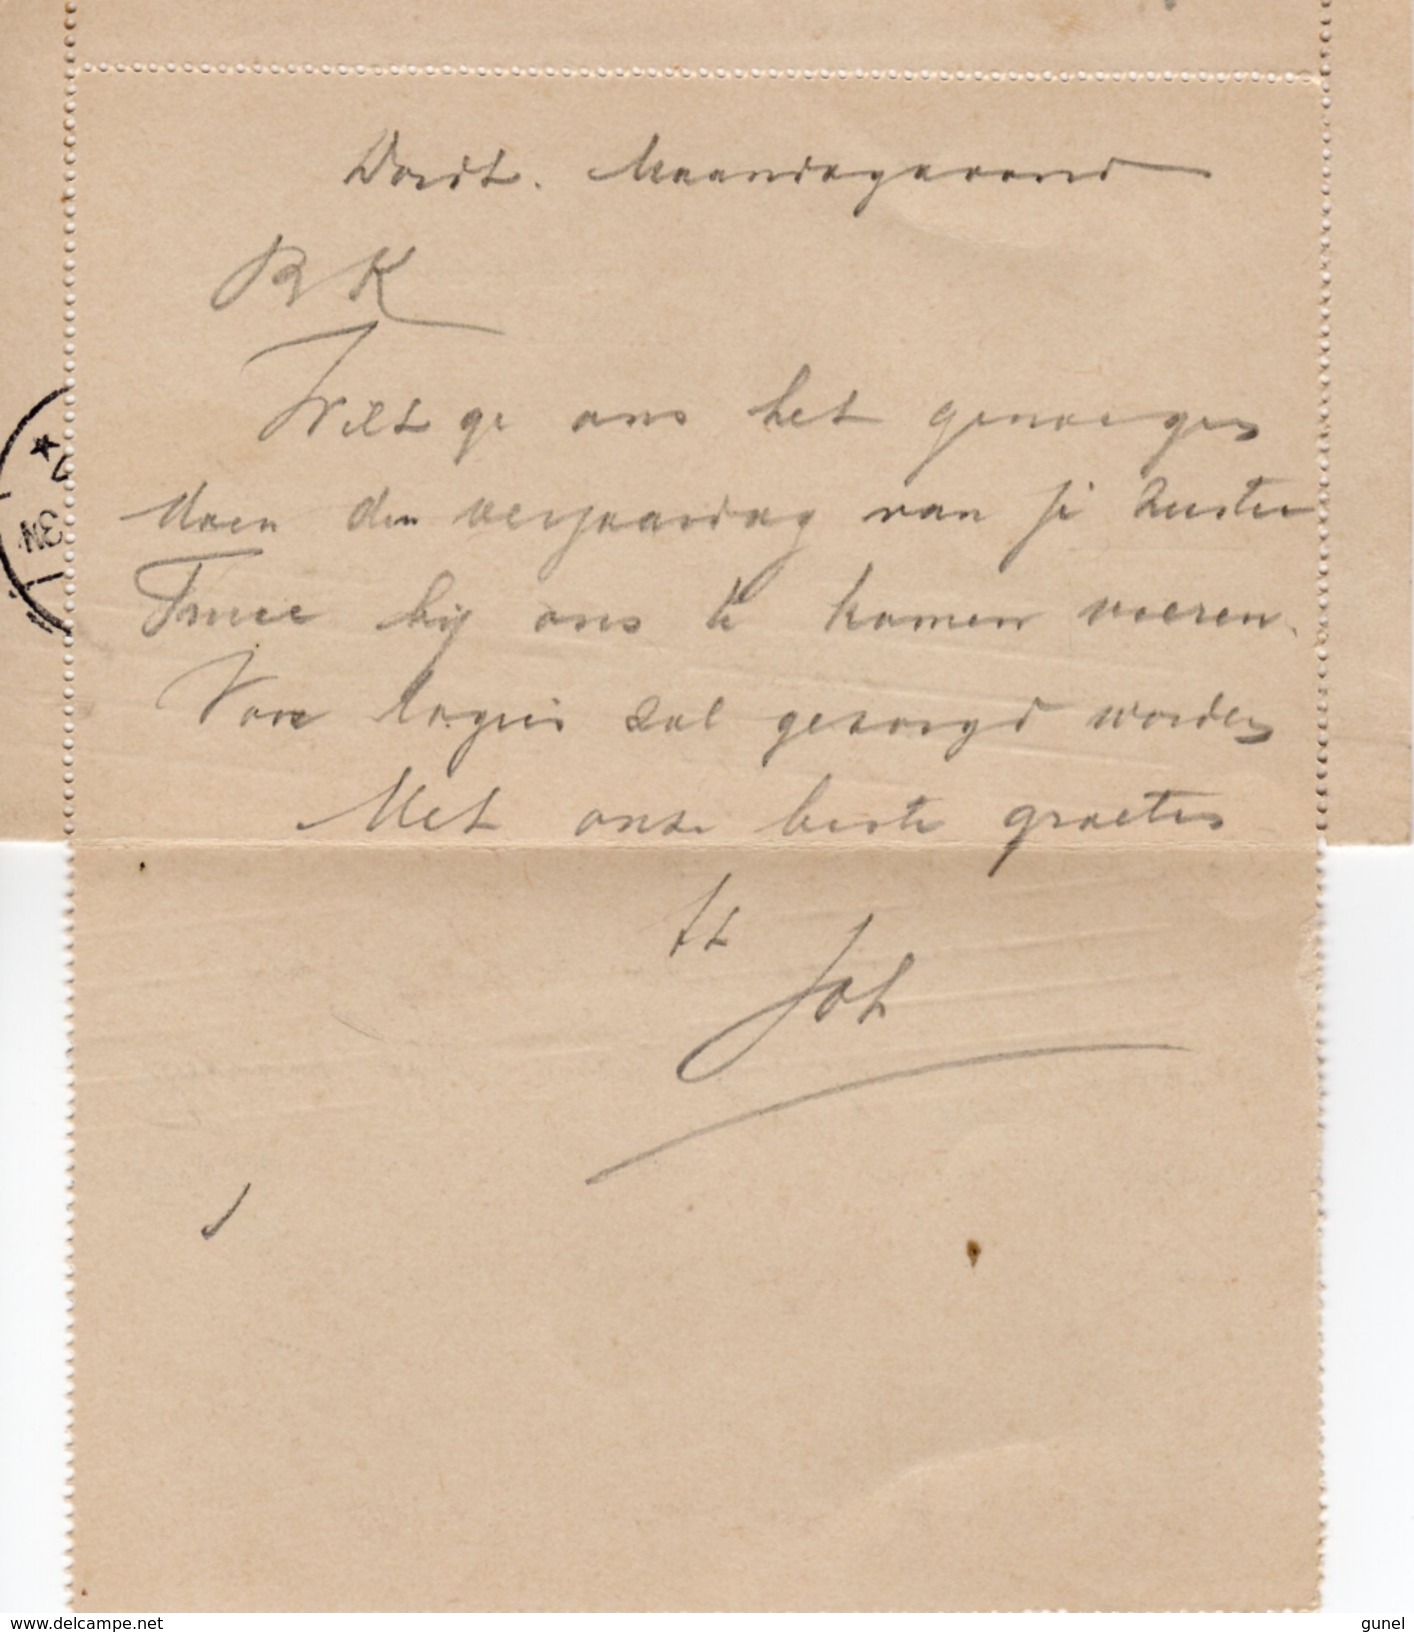 Dordt. Maandagavond
B K
Wilt ge ons het genoegen
doen den verjaardag van je zuster
bij ons te komen vieren.
Voor logies zal gezorgd worden
Met onze beste groeten
tt
Joh
3N
delcampe.net
gunel